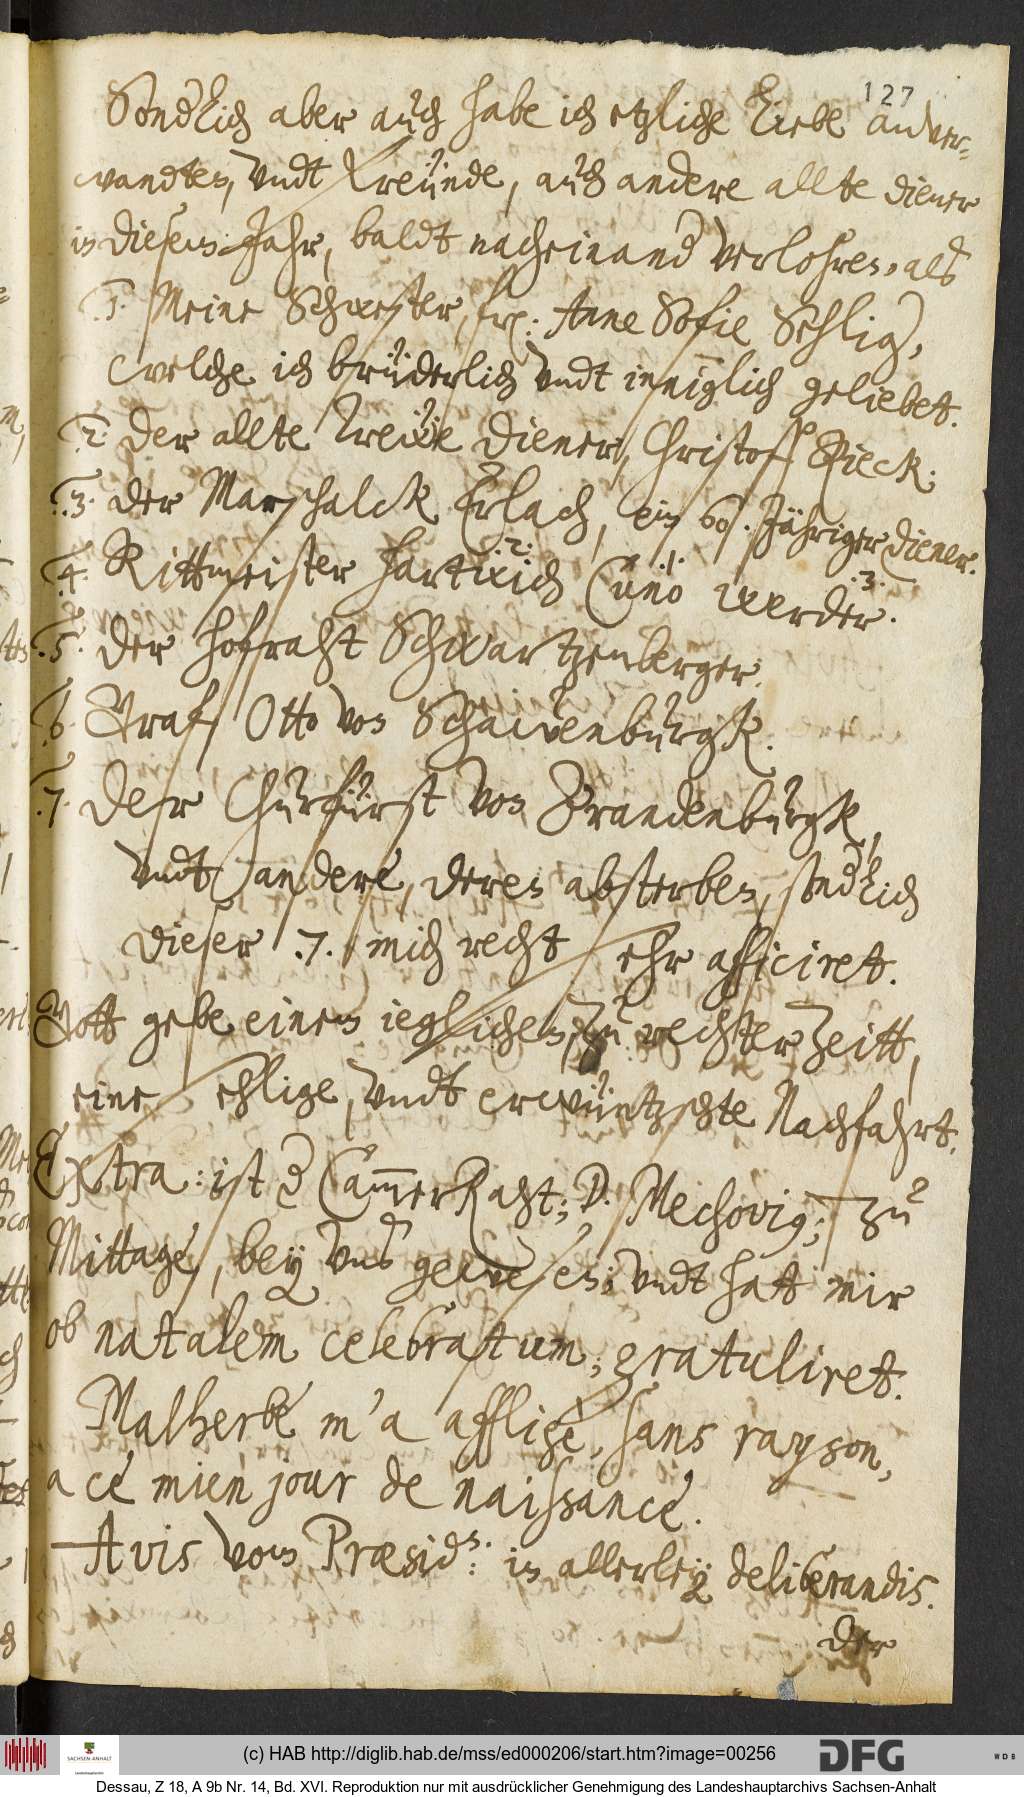 127
Sond'lich aber auch habe ich etzliche liebe anver-
wandten, undt freünde, auch andere allte diener
in diesem Jahr, baldt nacheinand' verlohren, als
.1. Meine Schwester, frl: Anne Sofie Sehlig',
welche ich brüderlich undt inniglich geliebet.
.2. der allte treüe diener, Christoff Rieck;
.3. der Marschalck Erlach, ein 60. Jähriger diener.
.4. Rittmeister Hartwich Cuno Werder.
.2. .1. .3.
.5. der hofraht Schwartzenberger.
.6. Graf Otto von Schawenburgk.
.7. der Churfürst von Brandenburgk,
undt andere, deren absterben, sond'lich
dieser .7. mich recht sehr afficiret.
Gott gebe einem ieglichen, zu rechter Zeitt,
eine sehlige, undt erwüntzschte Nachfahrt.
Extra: ist d' Cam̅erRaht; D. Mechovig; zu
Mittage, bey uns gewesen; undt hatt mir
ob natalem celebratum, gratuliret.
Malherbe m'a affligè, sans rayson,
a ce mien jour de naissance.
Avis vom Præsid: in allerley deliberandis.
der
(c) HAB http://diglib.hab.de/mss/ed000206/start.htm?image=00256
SACHSEN-ANHALT
DFG
WDB
Dessau, Z 18, A 9b Nr. 14, Bd. XVI. Reproduktion nur mit ausdrücklicher Genehmigung des Landeshauptarchivs Sachsen-Anhalt